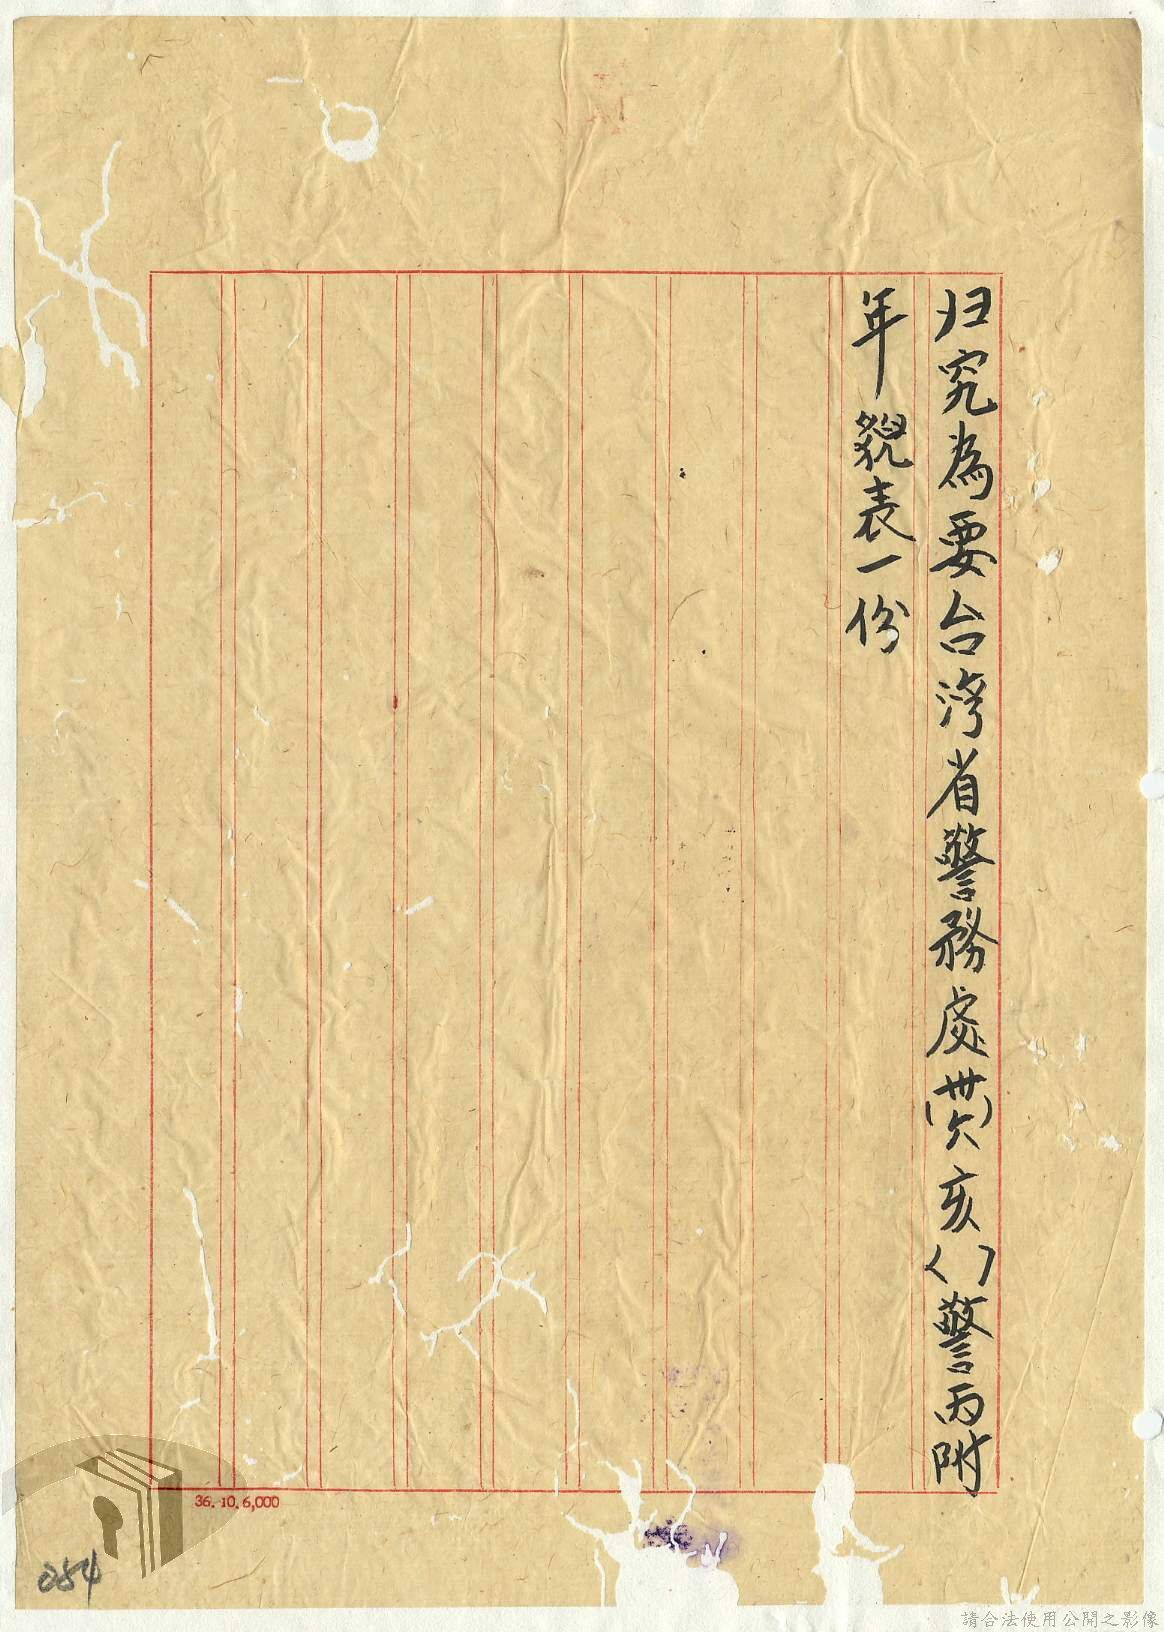 归究為要台灣省警務處(卅六)亥()警丙附
年貌表一份
36.10.6,000
054
請合法使用公開之影像